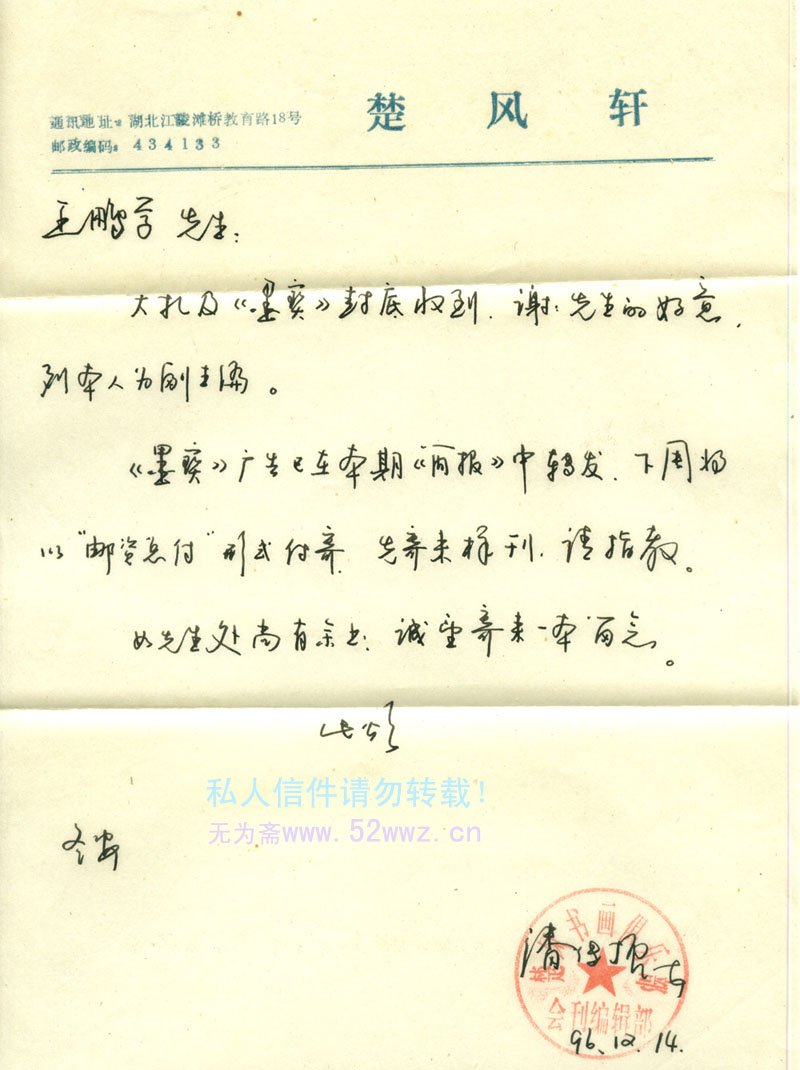 楚风轩
通讯地址：湖北江陵滩桥教育路18号
邮政编码：434133
王鹏学先生：
大札及《墨宝》封底收到，谢谢先生的好意，
列本人为副主编。
《墨宝》广告已在本期《简报》中转发，下周将
以“邮资总付”形式付寄，先寄来样刊，请指教。
如先生处尚有余书，诚望寄来一本留念。
此颂
冬安
私人信件请勿转载！
无为斋www.52wwz.cn
书画
会刊编辑部
潘
96.12.14.